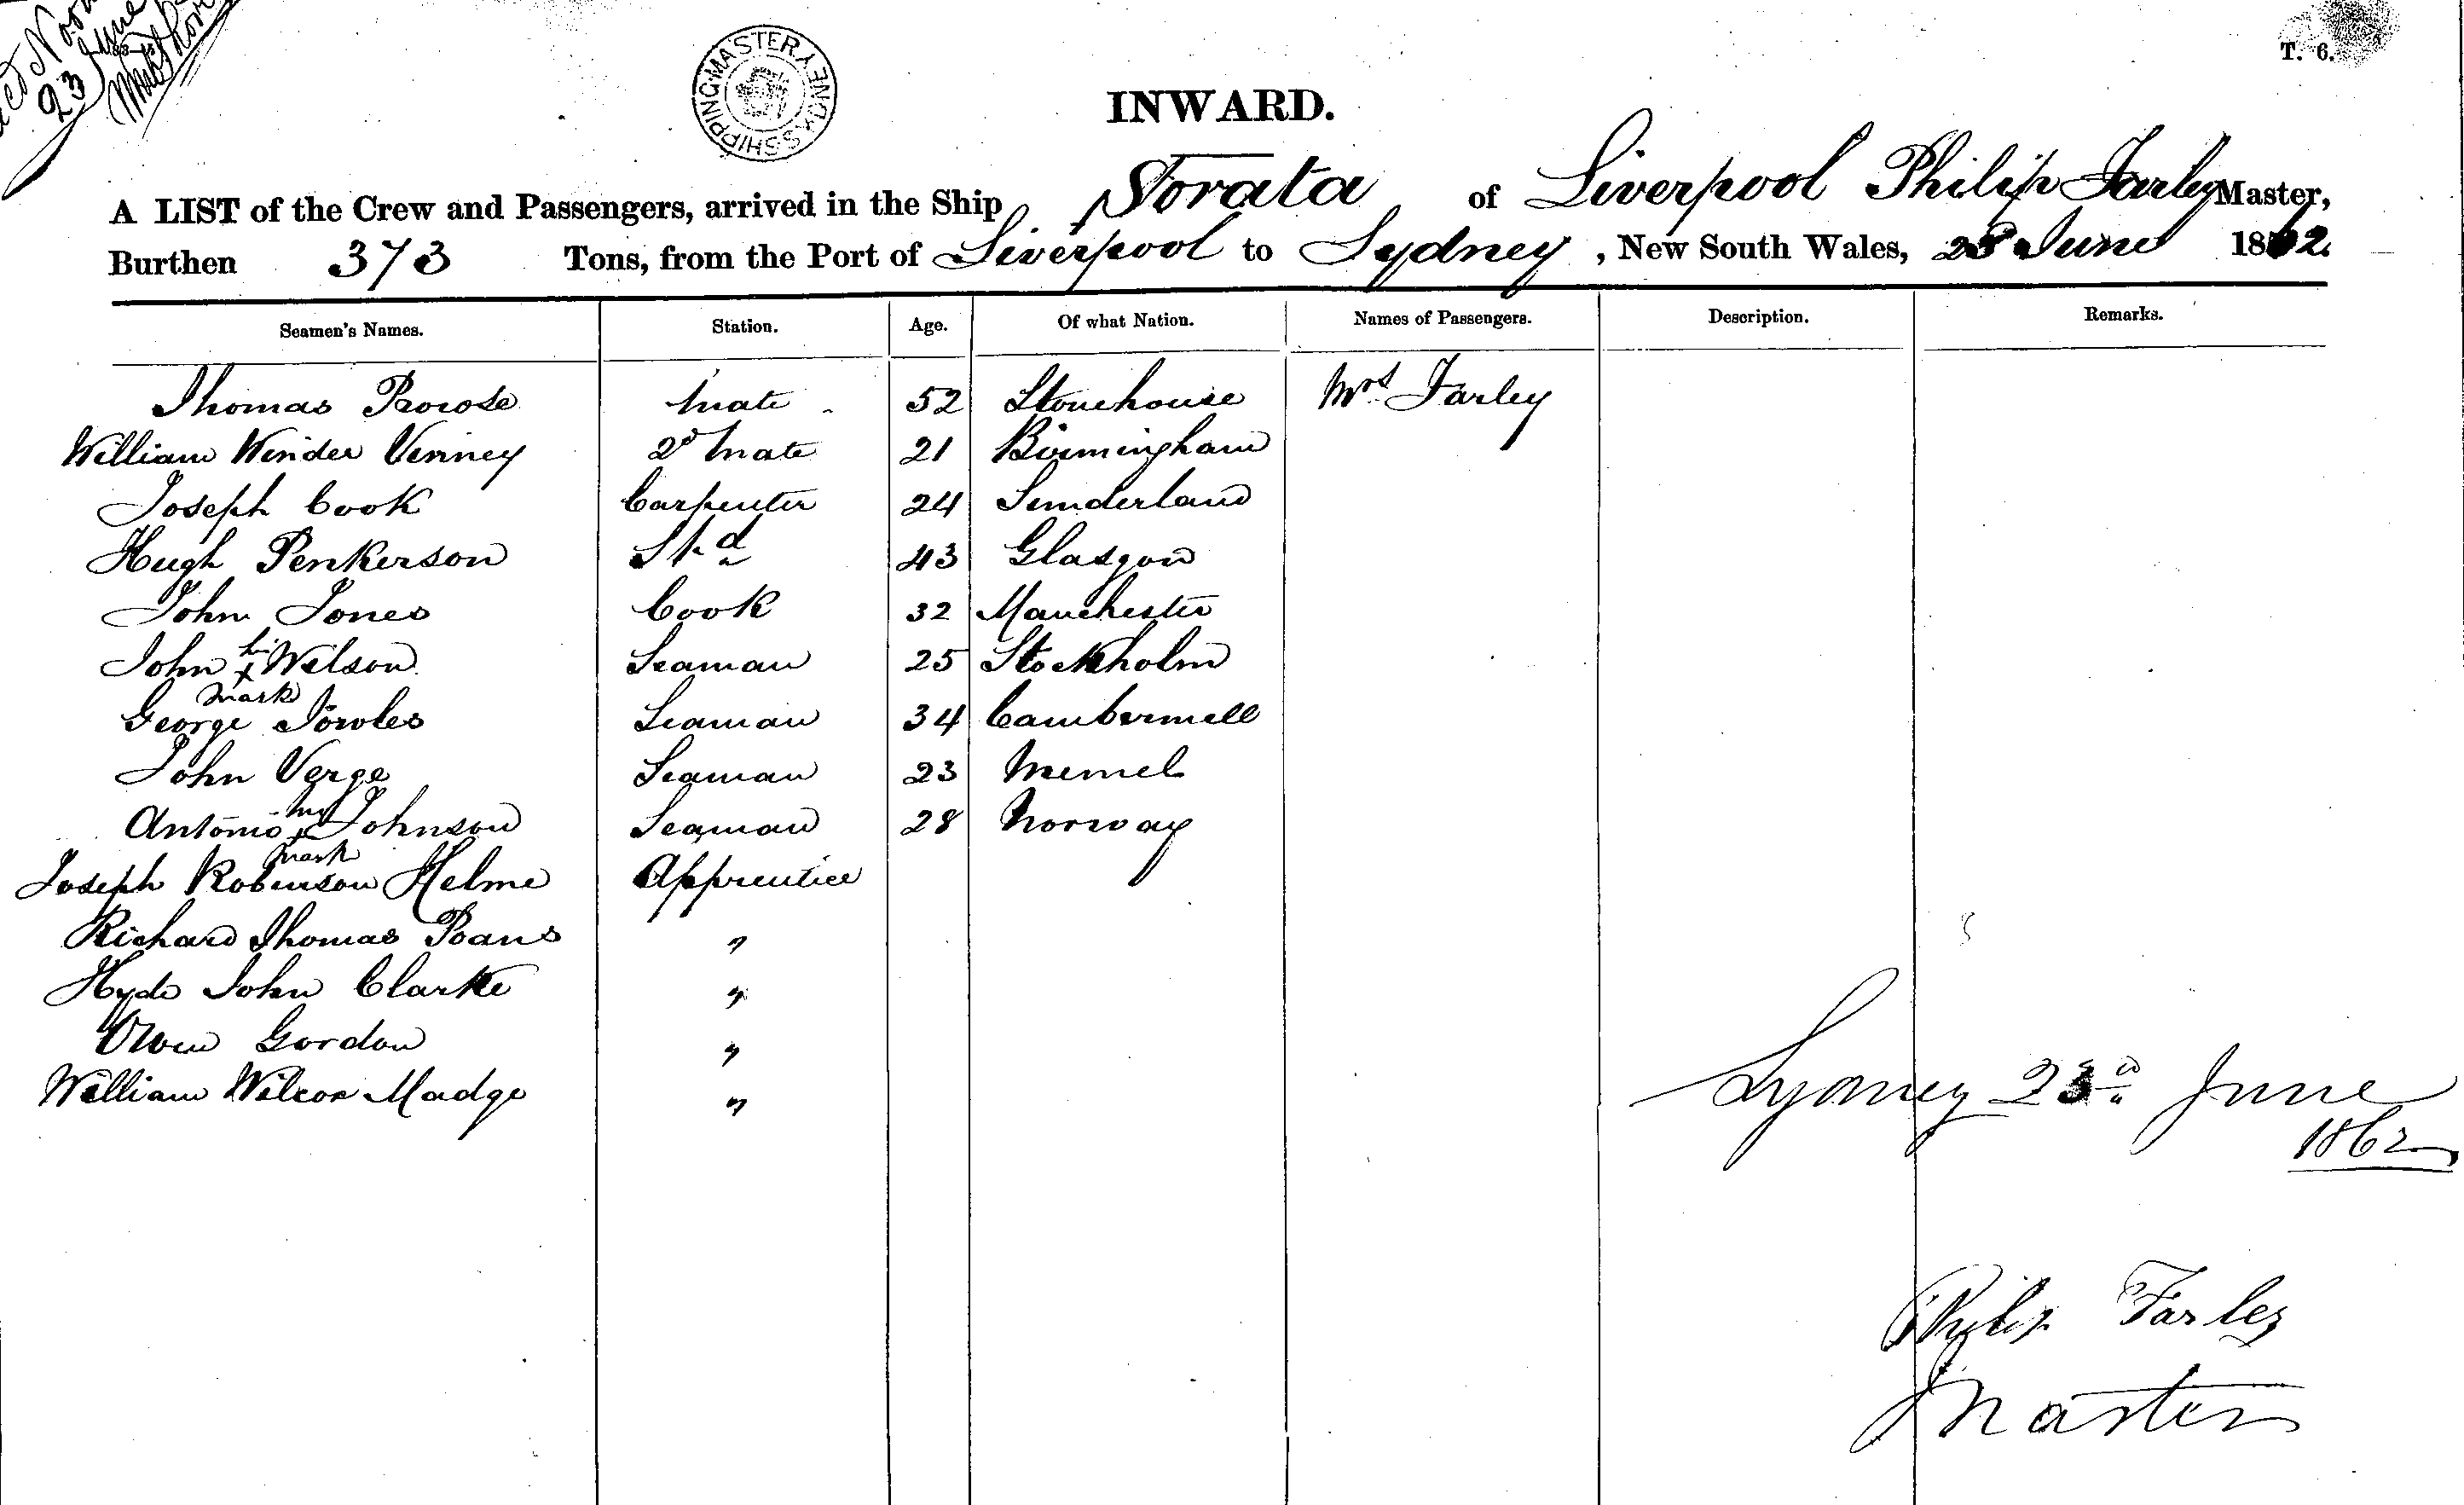 23 June
SHIPPING MASTER SYDNEY
T. 6.
INWARD.
A LIST of the Crew and Passengers, arrived in the Ship Sorata of Liverpool Philip Farley Master,
Burthen 373 Tons, from the Port of Liverpool to Sydney, New South Wales, 23 June 1862.
Seamen's Names. Station. Age. Of what Nation. Names of Passengers. Description. Remarks.
Thomas Mate 52 Stonehouse Mrs Farley
William Winder Venney 2d Mate 21 Birmingham
Joseph Cook Carpenter 24 Sunderland
Hugh Penkerson Std 43 Glasgow
John Jones Cook 32 Manchester
John his x mark Wilson Seaman 25 Stockholm
George Seaman 34 Camberwell
John Verge Seaman 23 Memel
Antonio x mark Johnson Seaman 28 Norway
Joseph Robinson Helme Apprentice
Richard Thomas "
Hyde John Clarke "
Owen Gordon "
William Wilcox Madge "
Sydney 23d June
1862
Philip Farley
Master